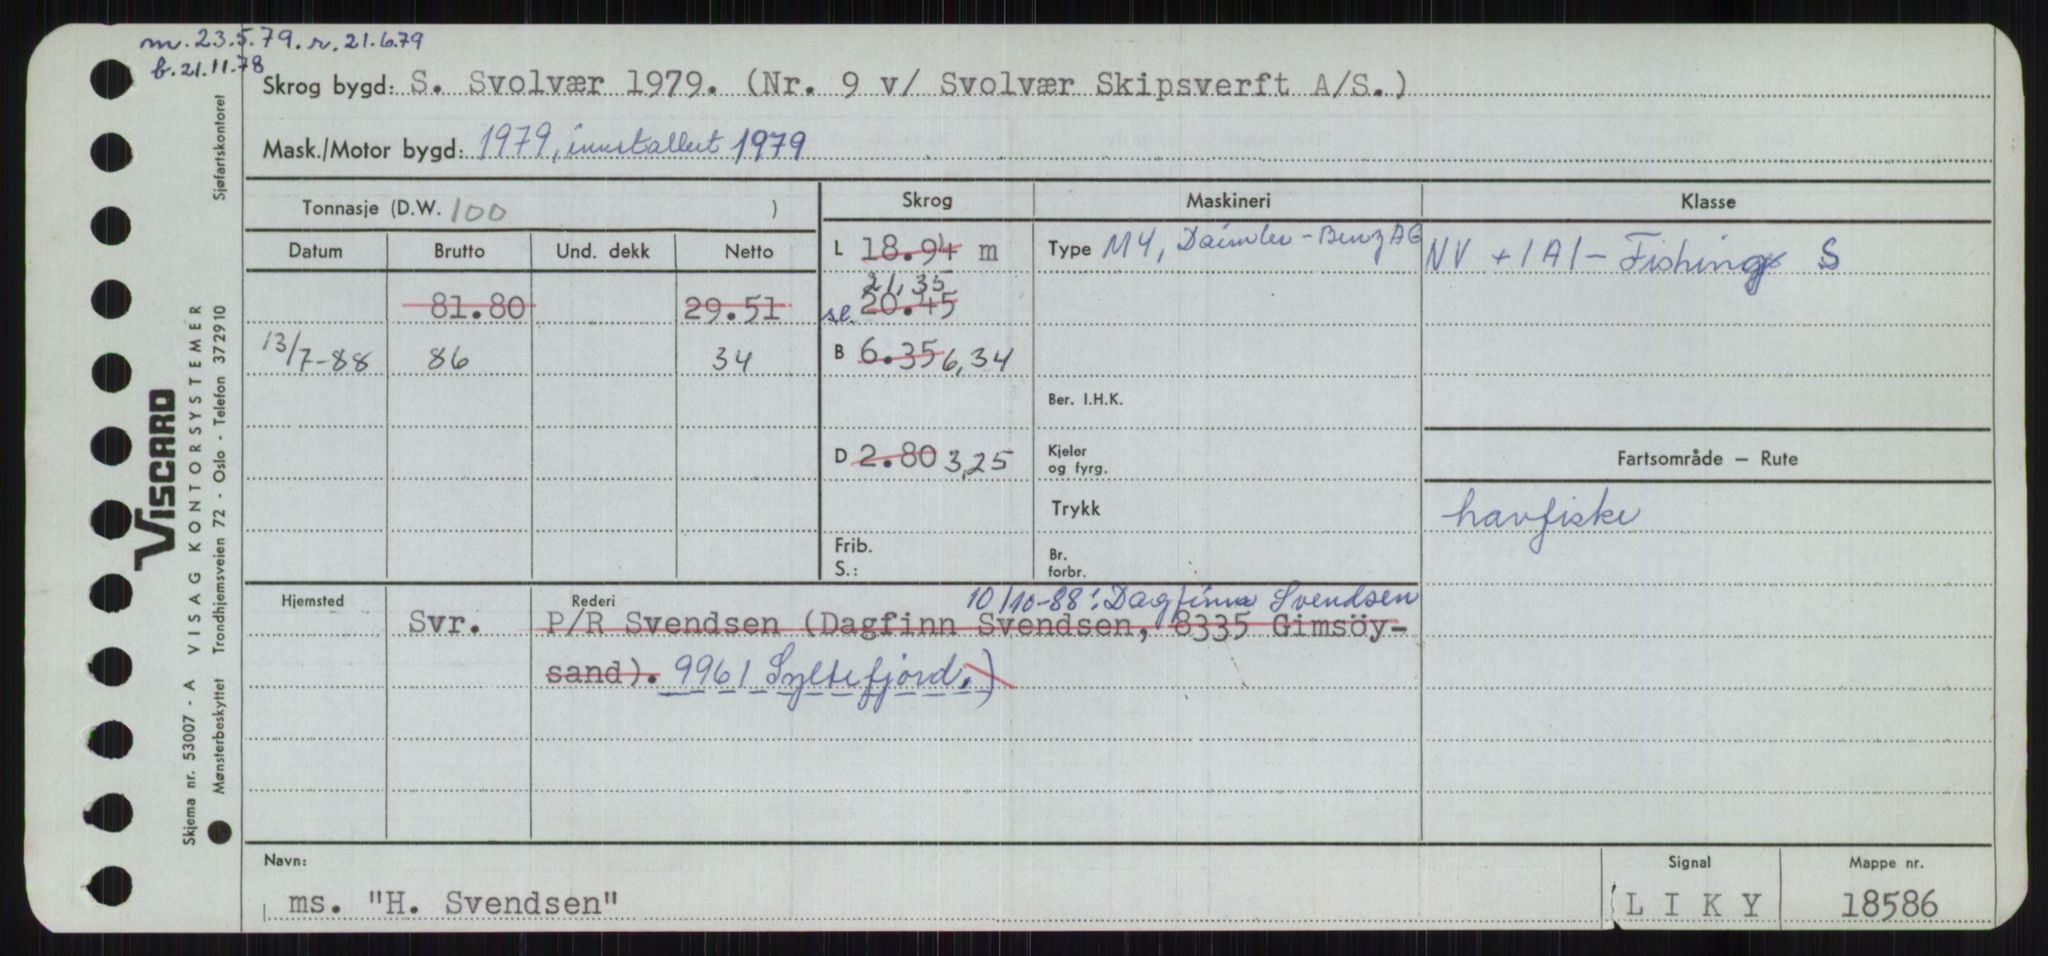 m. 23.5.79. r. 21.6.79
b. 21.11.78
Skrog bygd: S. Svolvær 1979. (Nr. 9 v/ Svolvær Skipsverft A/S.)
Mask./Motor bygd: 1979, installert 1979
Tonnasje (D.W. 100 )
Skrog Maskineri Klasse
Datum Brutto Und. dekk Netto
L 18.94 m
Type M4, Daimler-Benz AG
NV + 1A1 - Fishing S
21,35
81.80 29.51 sl. 20.45
13/7-88 86 34 B 6.35 6,34
Ber. I.H.K.
D 2.80 3,25
Kjeler
og fyrg.
Fartsområde — Rute
Trykk
havfiske
Frib.
S.:
Br.
forbr.
Hjemsted Rederi 10/10-88: Dagfinn Svendsen
Svr. P/R Svendsen (Dagfinn Svendsen, 8335 Gimsöy-
sand). 9961 Syltefjord.)
Navn: Signal Mappe nr.
ms. "H. Svendsen" L I K Y 18586
VISCARD
Skjema nr. 53007 - A VISAG KONTORSYSTEMER
Mønsterbeskyttet Trondhjemsveien 72 - Oslo - Telefon 372910 Sjøfartskontoret